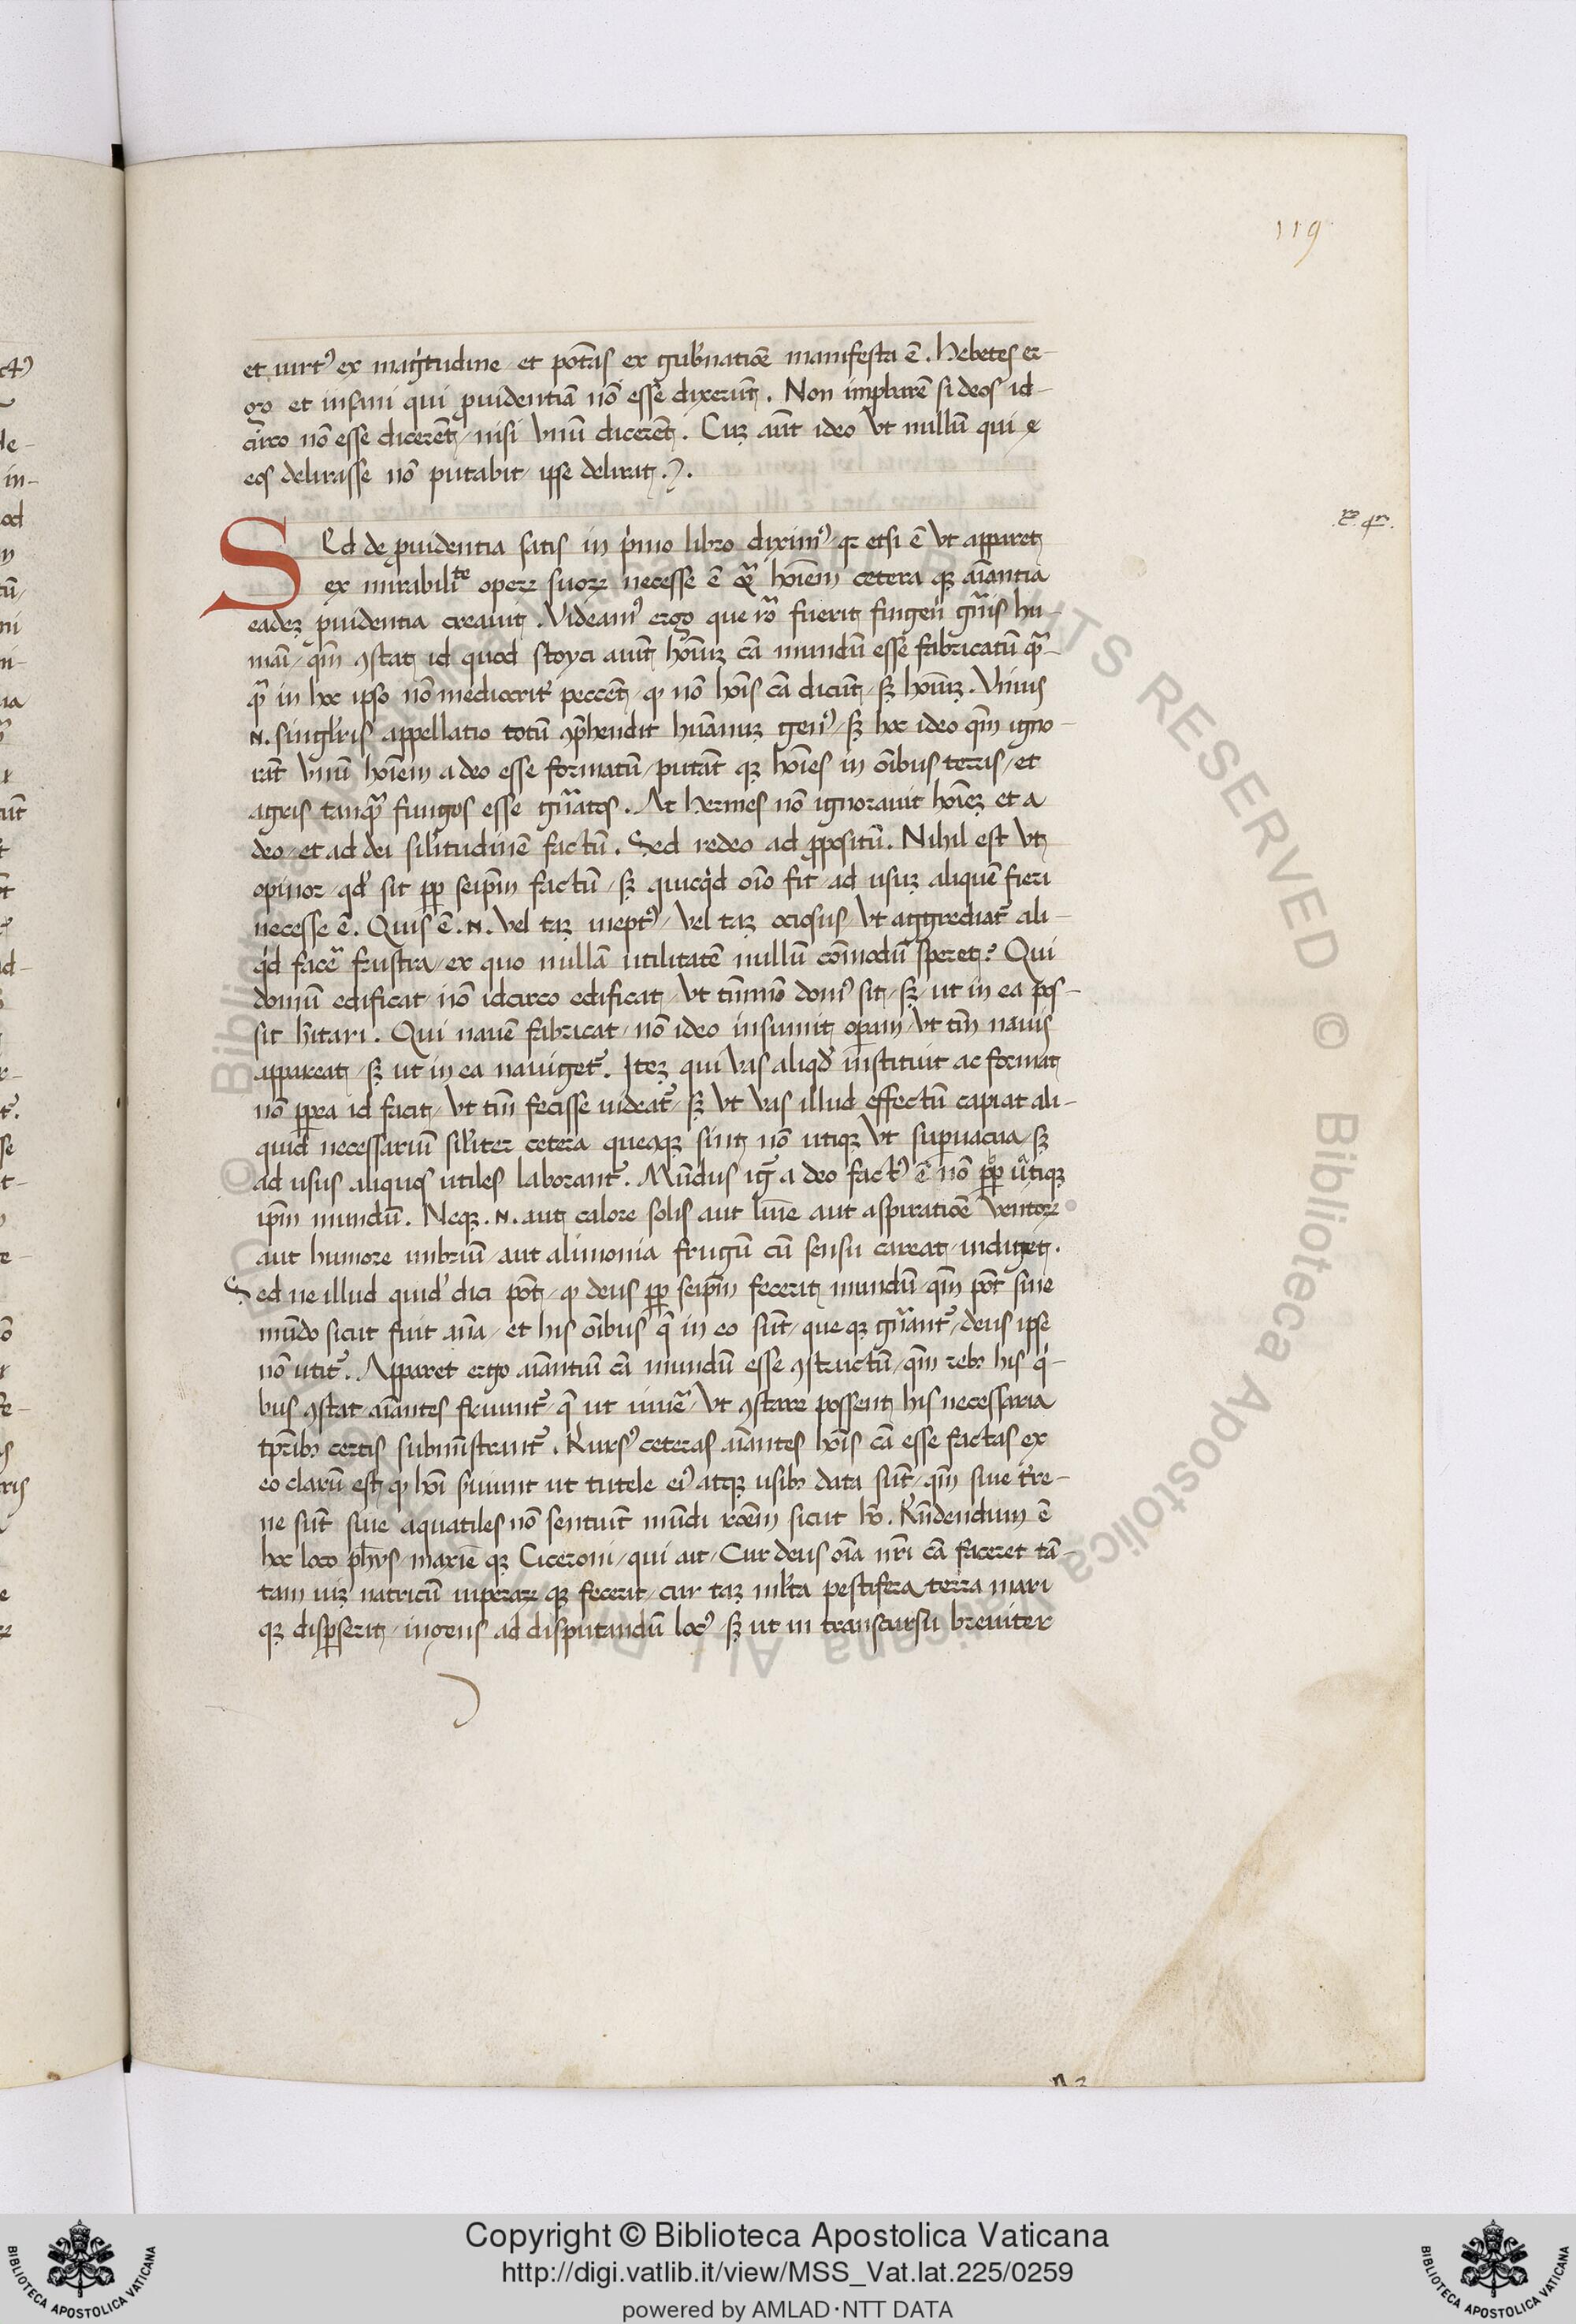 119
et uirtꝰ ex magͥtudine et potͣas ex gub̕natiōe manifesta ē. Hebetes er-
go et insani qui ꝓuidentiā nō esse dixerūt. Non implarē si deos id-
circo nō esse dicerēt nisi Vnū dicerēt. Cuꝫ aūt ideo Vt nullū qui
eos delirasse nō putabit ipse delirat.
SEd de ꝓuidentia satis in pͥmo libro diximꝰ qꝫ etsi ē Vt apparet
ex mirabiliᵗᵉ operꝝ suorꝝ necesse ē qͣ hoīem cetera qꝫ aīantia
eadeꝫ ꝓuidentia creauit. Videamꝰ ergo que rō fuerit fingēdi gn̄is hu-
mani qm̄ ꝯstat id quod stoyci aiūt hoīuꝫ cā mundū esse fabricatū qͣ-
qͣ in hoc ipso nō mediocrit̕ peccēt ꝙ nō hoīs cā dicūt sꝫ hoīuꝫ. Vnius
.N. singl̕ris appellatio totū ꝯp̄hendit humanuꝫ genꝰ sꝫ hoc ideo qm̄ igno-
rāt Vnū hoīem a deo esse formatū putāt qꝫ hoīes in oībus terris et
agris tanqͣ fungos esse gn̄atos. At hermes nō ignorauit hoīeꝫ et a
deo et ad dei sil̕itudinē factū. Sed redeo ad ꝓpositū. Nihil est Vt
opinor qd̕ sit ꝓp seip̄m factū sꝫ quicqͥd oīo fit ad usuꝫ aliquē fieri
necesse ē. Quis ē .N. Vel taꝫ ineptꝰ Vel taꝫ ociosus Vt aggrediat̕ ali-
qͥd face̕ frustra ex quo nullā utilitatē nullū cōmodū speret? Qui
domū edificat nō idcirco edificat Vt tm̄mō domꝰ sit sꝫ ut in ea pos-
sit h̄itari. Qui nauē fabricat nō ideo insumit operam Vt tm̄ nauis
appareat sꝫ ut in ea nauiget̕. Iteꝫ qui Vas aliqd̕ instituit ac format
nō ꝓpea id facit Vt tm̄ fecisse uideat̕ sꝫ Vt Vas illud effectū capiat ali-
quid necessariū sil̕iter cetera queqꝫ sint nō utiqꝫ Vt superuacua sꝫ
ad usus aliquos utiles laborant̕. Mūdus igr̄ a deo factꝰ ē nō ꝓp utiqꝫ
ip̄m mundū. Neqꝫ .N. aut calore solis aut lūie aut aspiratiōe Ventorꝝ
aut humore imbriū aut alimonia frugū cū sensu careat indiget.
Sed ne illud quid̕ dici pōt ꝙ deus ꝓp seip̄m fecerit mundū qm̄ pōt sine
mūdo sicut fuit an̄a et his oībus q̄ in eo sūt que qꝫ gn̄ant̕ deus ipse
nō utit̕. Apparet ergo aīantiū cā mundū esse ꝯstructū qm̄ rebꝫ his qͥ-
bus ꝯstat aīantes fruunt̕ q̄ ut uiue̕ Vt ꝯstare possent his necessaria
tp̄ribꝫ certis submīstrant̕. Rursꝰ ceteras aīantes hoīs cā esse factas ex
eo clarū est ꝙ hoī s̕uiunt ut tutele eiꝰ atqꝫ usibꝫ data sūt qm̄ siue t̕re-
ne sūt siue aquatiles nō sentiūt mūdi roēm sicut hō. Rn̄dendum ē
hoc loco ph̄ys maxīe qꝫ Ciceroni qui ait Cur deus oīa nr̄i cā faceret tā-
tam uiꝫ natricū uiperarꝝ qꝫ fecerit cur taꝫ ml̕ta pestifera terra mari
qꝫ disperserit ingens ad disputandū locꝰ sꝫ ut in transcursu breuiter
© Biblioteca Apostolica Vaticana ALL RIGHTS RESERVED
Copyright © Biblioteca Apostolica Vaticana
http://digi.vatlib.it/view/MSS_Vat.lat.225/0259
powered by AMLAD·NTT DATA
BIBLIOTECA APOSTOLICA VATICANA
BIBLIOTECA APOSTOLICA VATICANA